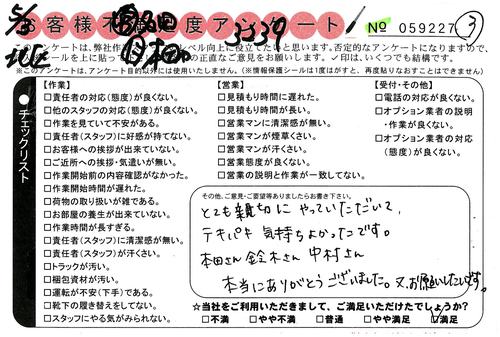 お客様不満足度アンケート
3539
№ 059227
3
このアンケートは、弊社作
レベル向上に役立てたいと思います。否定的なアンケートになりますので、
シールを上に貼って
の正直なご意見をお願いします。✓印は、いくつでも結構です。
※このアンケートは、アンケート目的以外には使用いたしません。(※情報保護シールは1度はがすと、再度貼りなおすことはできません)
●チェックリスト
【作業】
□責任者の対応(態度)が良くない。
□他のスタッフの対応(態度)が良くない。
□作業を見ていて不安がある。
□責任者(スタッフ)に好感が持てない。
□お客様への挨拶が出来ていない。
□ご近所への挨拶・気遣いが無い。
□作業開始前の内容確認がなかった。
□作業開始時間が遅れた。
□荷物の取り扱いが雑である。
□お部屋の養生が出来ていない。
□作業時間が長すぎる。
□責任者(スタッフ)に清潔感が無い。
□責任者(スタッフ)が汗くさい。
□トラックが汚い。
□梱包資材が汚い。
□運転が不安(下手)である。
□靴下の履き替えをしてない。
□スタッフにやる気がみられない。
【営業】
□見積もり時間に遅れた。
□見積もり時間が長い。
□営業マンに清潔感が無い。
□営業マンが煙草くさい。
□営業マンが汗くさい。
□営業態度が良くない。
□営業の説明と作業が一致してない。
【受付・その他】
□電話の対応が良くない。
□オプション業者の説明
・作業が良くない。
□オプション業者の対応
(態度)が良くない。
その他、ご意見・ご要望等ありましたらお書き下さい。
とても親切にやっていただいて、
テキパキ気持ちよかったです。
本田さん 鈴木さん 中村さん
本当にありがとうございました。又、お願いしたいです。
☆当社をご利用いただきまして、ご満足いただけたでしょうか?
□不満 □やや不満 □普通 □やや満足 ☑満足